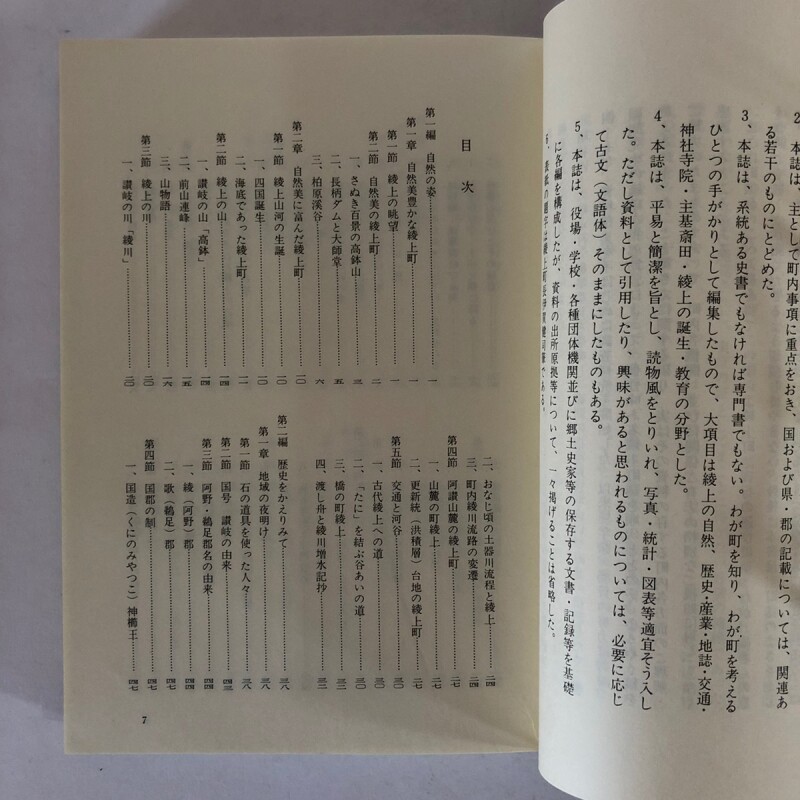 2、本誌は、主として町内事項に重点をおき、国および県・郡の記載については、関連あ
る若干のものにとどめた。
3、本誌は、系統ある史書でもなければ専門書でもない。わが町を知り、わが町を考える
ひとつの手がかりとして編集したもので、大項目は綾上の自然、歴史・産業・地誌・交通・
神社寺院・主基斎田・綾上の誕生・教育の分野とした。
4、本誌は、平易と簡潔を旨とし、読物風をとりいれ、写真・統計・図表等適宜そう入し
た。ただし資料として引用したり、興味があると思われるものについては、必要に応じ
て古文（文語体）そのままにしたものもある。
5、本誌は、役場・学校・各種団体機関並びに郷土史家等の保存する文書・記録等を基礎
に各編を構成したが、資料の出所原拠等について、一々掲げることは省略した。
目次
第一編 自然の姿……一
第一章 自然美豊かな綾上町……一
第一節 綾上の眺望……一
第二節 自然美の綾上町……二
一、さぬき百景の高鉢山……三
二、長柄ダムと大師堂……五
三、柏原渓谷……六
第二章 自然美に富んだ綾上町……一〇
第一節 綾上山河の生誕……一〇
一、四国誕生……一〇
二、海底であった綾上町……一一
第二節 綾上の山……一四
一、讃岐の山「高鉢」……一四
二、前山連峰……一五
三、山物語……一六
第三節 綾上の川……二〇
一、讃岐の川「綾川」……二〇
二、おなじ頃の土器川流程と綾上……二四
三、町内綾川流路の変遷……二四
第四節 阿讃山麓の綾上町……二七
一、山麓の町綾上……二七
二、更新統（洪積層）台地の綾上町……二七
第五節 交通と河谷……三〇
一、古代綾上への道……三〇
二、「たに」を結ぶ谷あいの道……三〇
三、橋の町綾上……三二
四、渡し舟と綾川増水記抄……三三
第二編 歴史をかえりみて……三八
第一章 地域の夜明け……三八
第一節 石の道具を使った人々……三八
第二節 国号 讃岐の由来……四三
第三節 阿野・鵜足郡名の由来……四四
一、綾（阿野）郡……四四
二、歌（鵜足）郡……四七
第四節 国郡の制……四七
一、国造（くにのみやつこ）神櫛王……四七
7